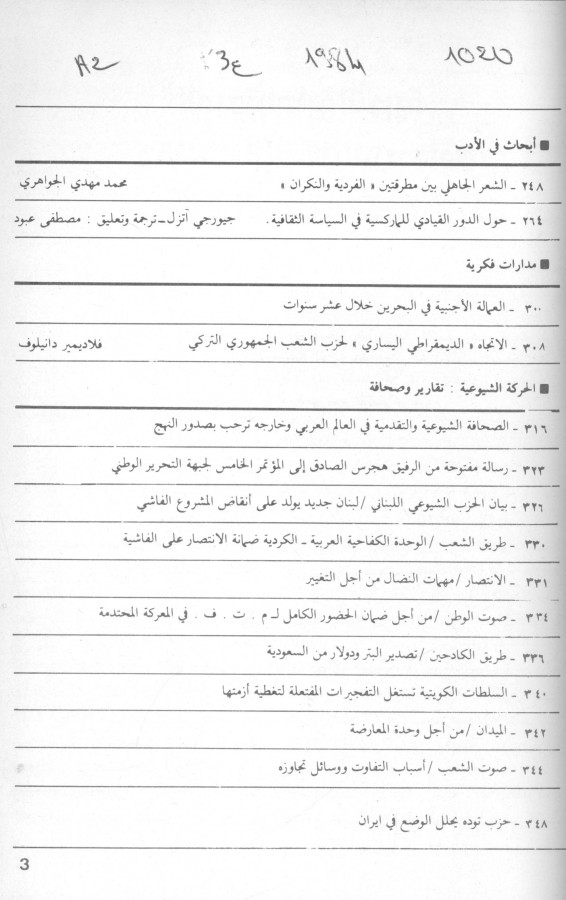 A2 3ع 1984 1020
■ أبحاث في الأدب
٢٤٨ - الشعر الجاهلي بين مطرقتين « الفردية والنكران » محمد مهدي الجواهري
٢٦٤ - حول الدور القيادي للماركسية في السياسة الثقافية. جيورجي آتزل-ترجمة وتعليق : مصطفى عبود
■ مدارات فكرية
٣٠٠ - العمالة الأجنبية في البحرين خلال عشر سنوات
٣٠٨ - الاتجاه « الديمقراطي اليساري » لحزب الشعب الجمهوري التركي فلاديمير دانيلوف
■ الحركة الشيوعية : تقارير وصحافة
٣١٦ - الصحافة الشيوعية والتقدمية في العالم العربي وخارجه ترحب بصدور النهج
٣٢٣ - رسالة مفتوحة من الرفيق هجرس الصادق إلى المؤتمر الخامس لجبهة التحرير الوطني
٣٢٦ - بيان الحزب الشيوعي اللبناني /لبنان جديد يولد على أنقاض المشروع الفاشي
٣٣٠ - طريق الشعب /الوحدة الكفاحية العربية - الكردية ضمانة الانتصار على الفاشية
٣٣١ - الانتصار /مهمات النضال من أجل التغيير
٣٣٤ - صوت الوطن /من أجل ضمان الحضور الكامل لـ م . ت . ف . في المعركة المحتدمة
٣٣٦ - طريق الكادحين /تصدير البترودولار من السعودية
٣٤٠ - السلطات الكويتية تستغل التفجيرات المفتعلة لتغطية أزمتها
٣٤٢ - الميدان /من أجل وحدة المعارضة
٣٤٤ - صوت الشعب /أسباب التفاوت ووسائل تجاوزه
٣٤٨ - حزب توده يحلل الوضع في ايران
3